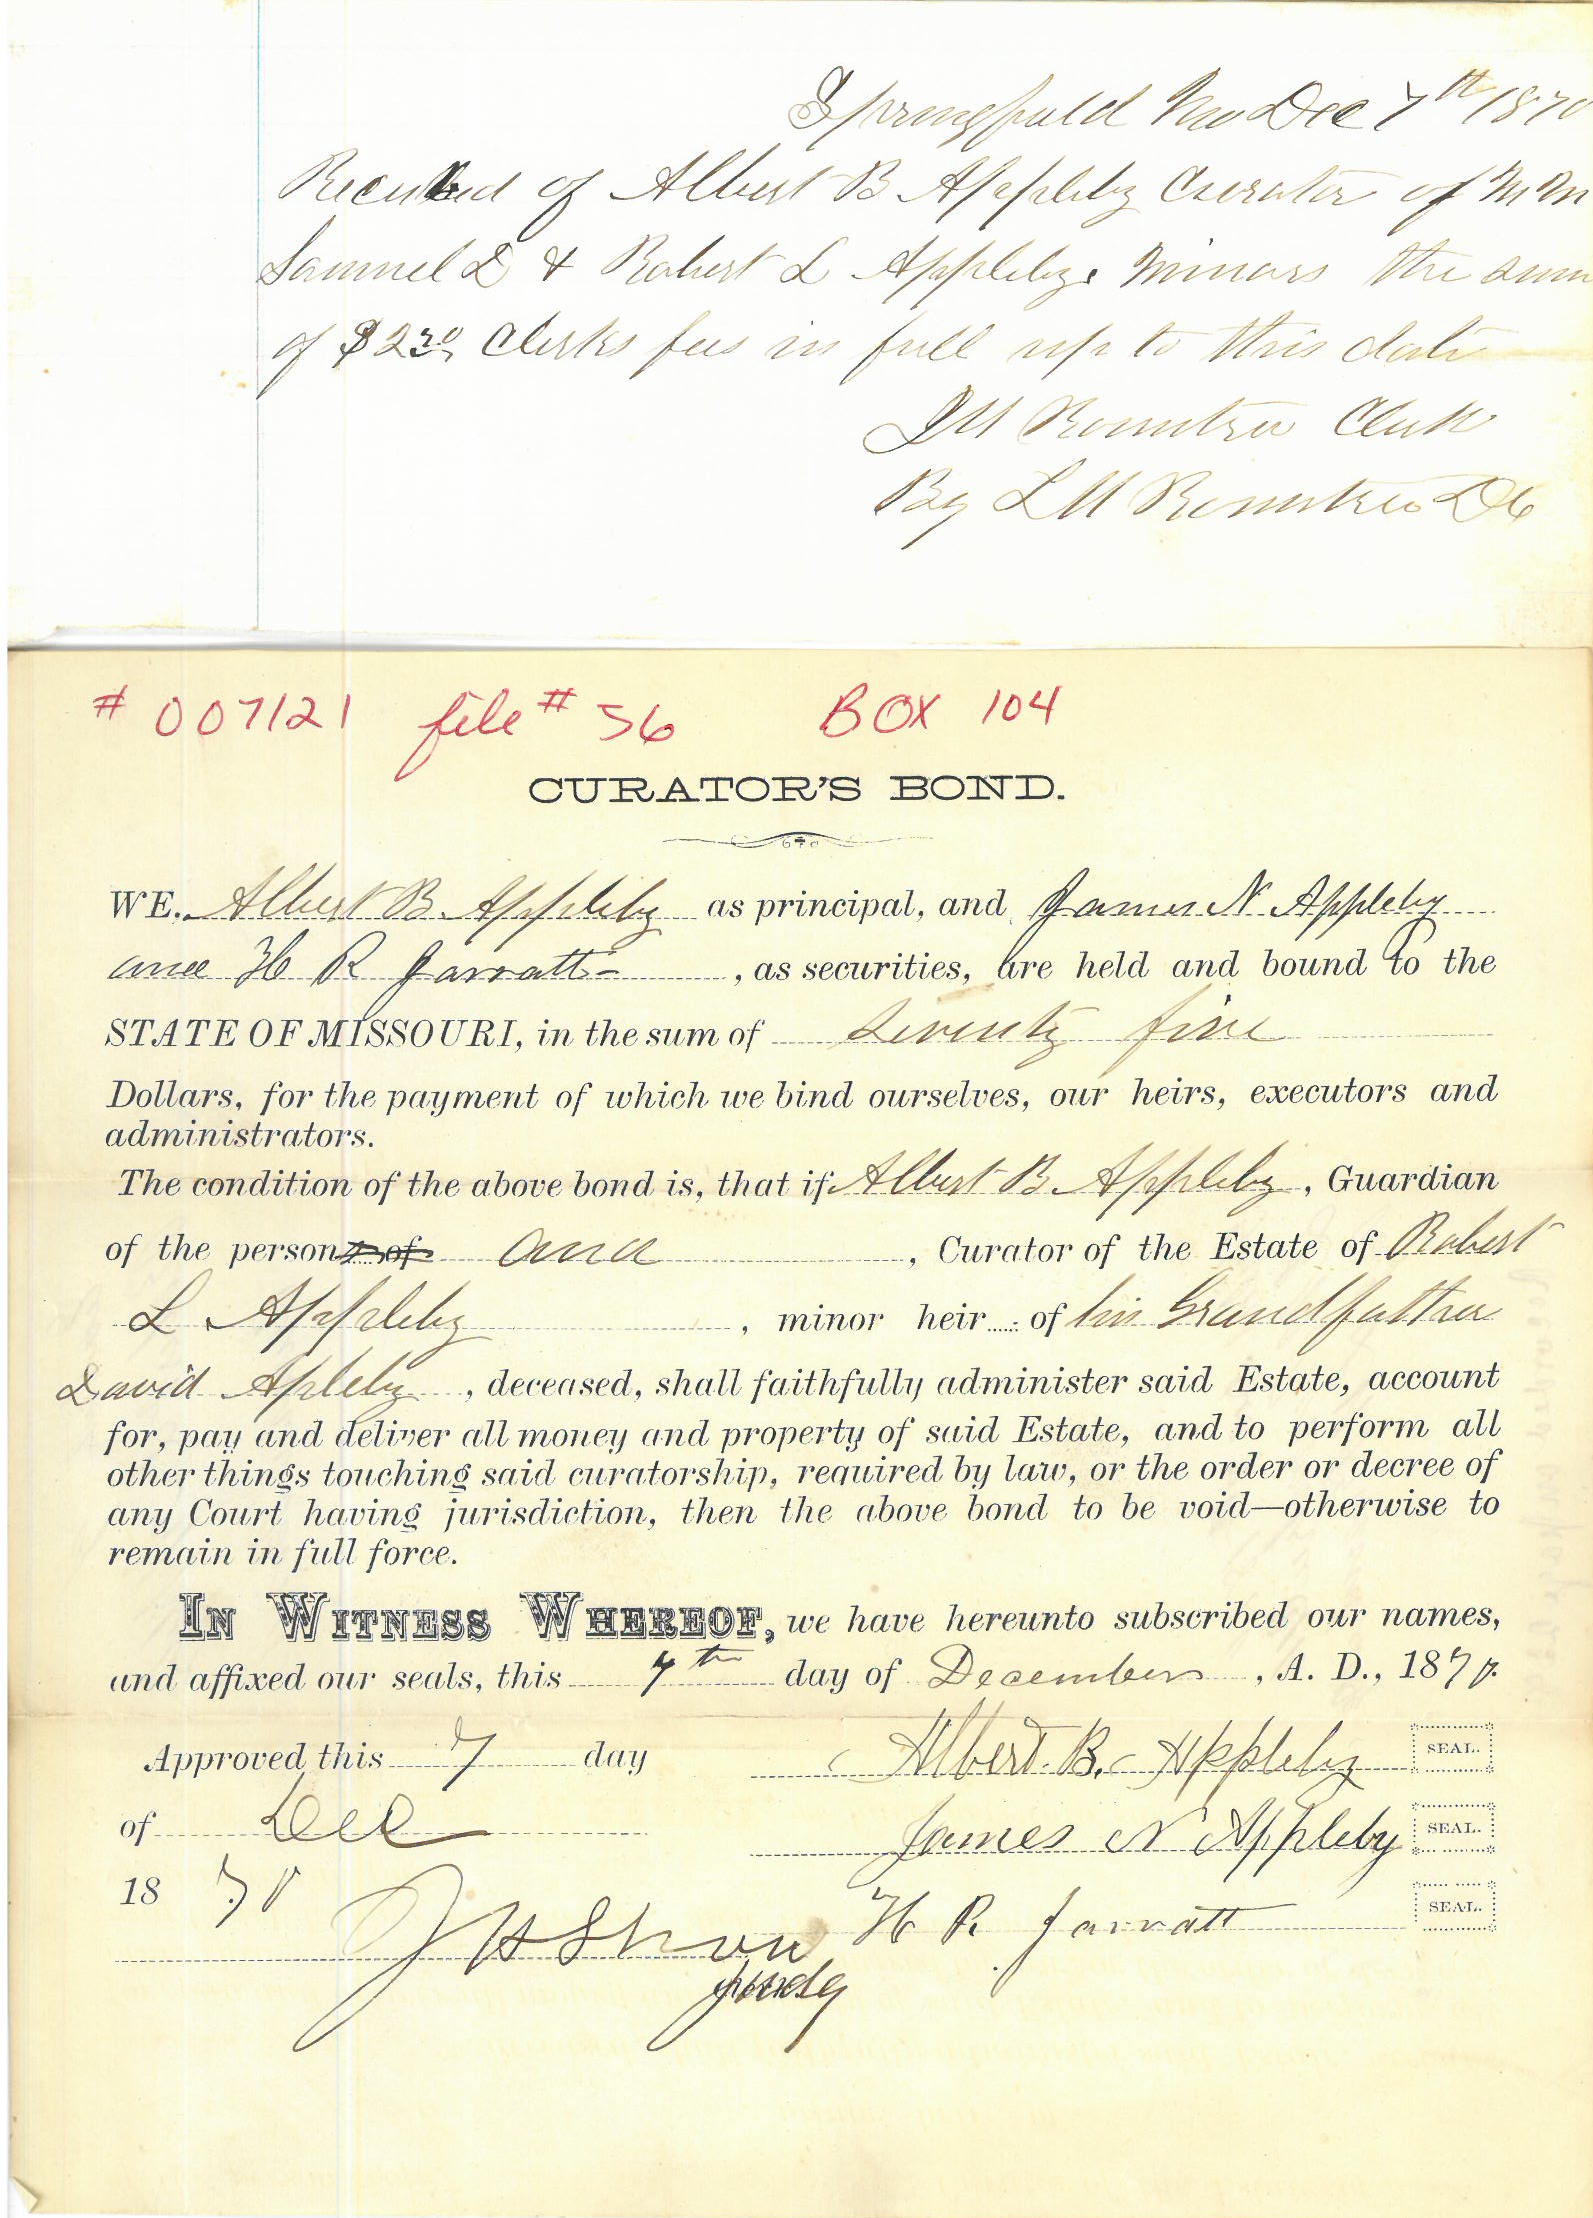 Springfield Mo Dec 7th 1870
Received of Albert B Appleby Curator of Wm
Samuel D & Robert L Appleby. Minors the sum
of $2 30, Clerks fees in full up to this date
J M Rountree Clerk
By L M Rountree D C
# 007121 file # 56 BOX 104
CURATOR'S BOND.
WE, Albert B. Appleby as principal, and James N. Appleby
and H R Jarratt- , as securities, are held and bound to the
STATE OF MISSOURI, in the sum of Seventy five
Dollars, for the payment of which we bind ourselves, our heirs, executors and
administrators.
The condition of the above bond is, that if Albert B Appleby, Guardian
of the person of and , Curator of the Estate of Robert
L Appleby , minor heir of his Grandfather
David Apleby , deceased, shall faithfully administer said Estate, account
for, pay and deliver all money and property of said Estate, and to perform all
other things touching said curatorship, required by law, or the order or decree of
any Court having jurisdiction, then the above bond to be void—otherwise to
remain in full force.
IN WITNESS WHEREOF, we have hereunto subscribed our names,
and affixed our seals, this 7th day of December , A. D., 1870.
Approved this 7 day Albert. B. Appleby SEAL.
of Dec James N Appleby SEAL.
18 70 H R. Jarratt SEAL.
Judg